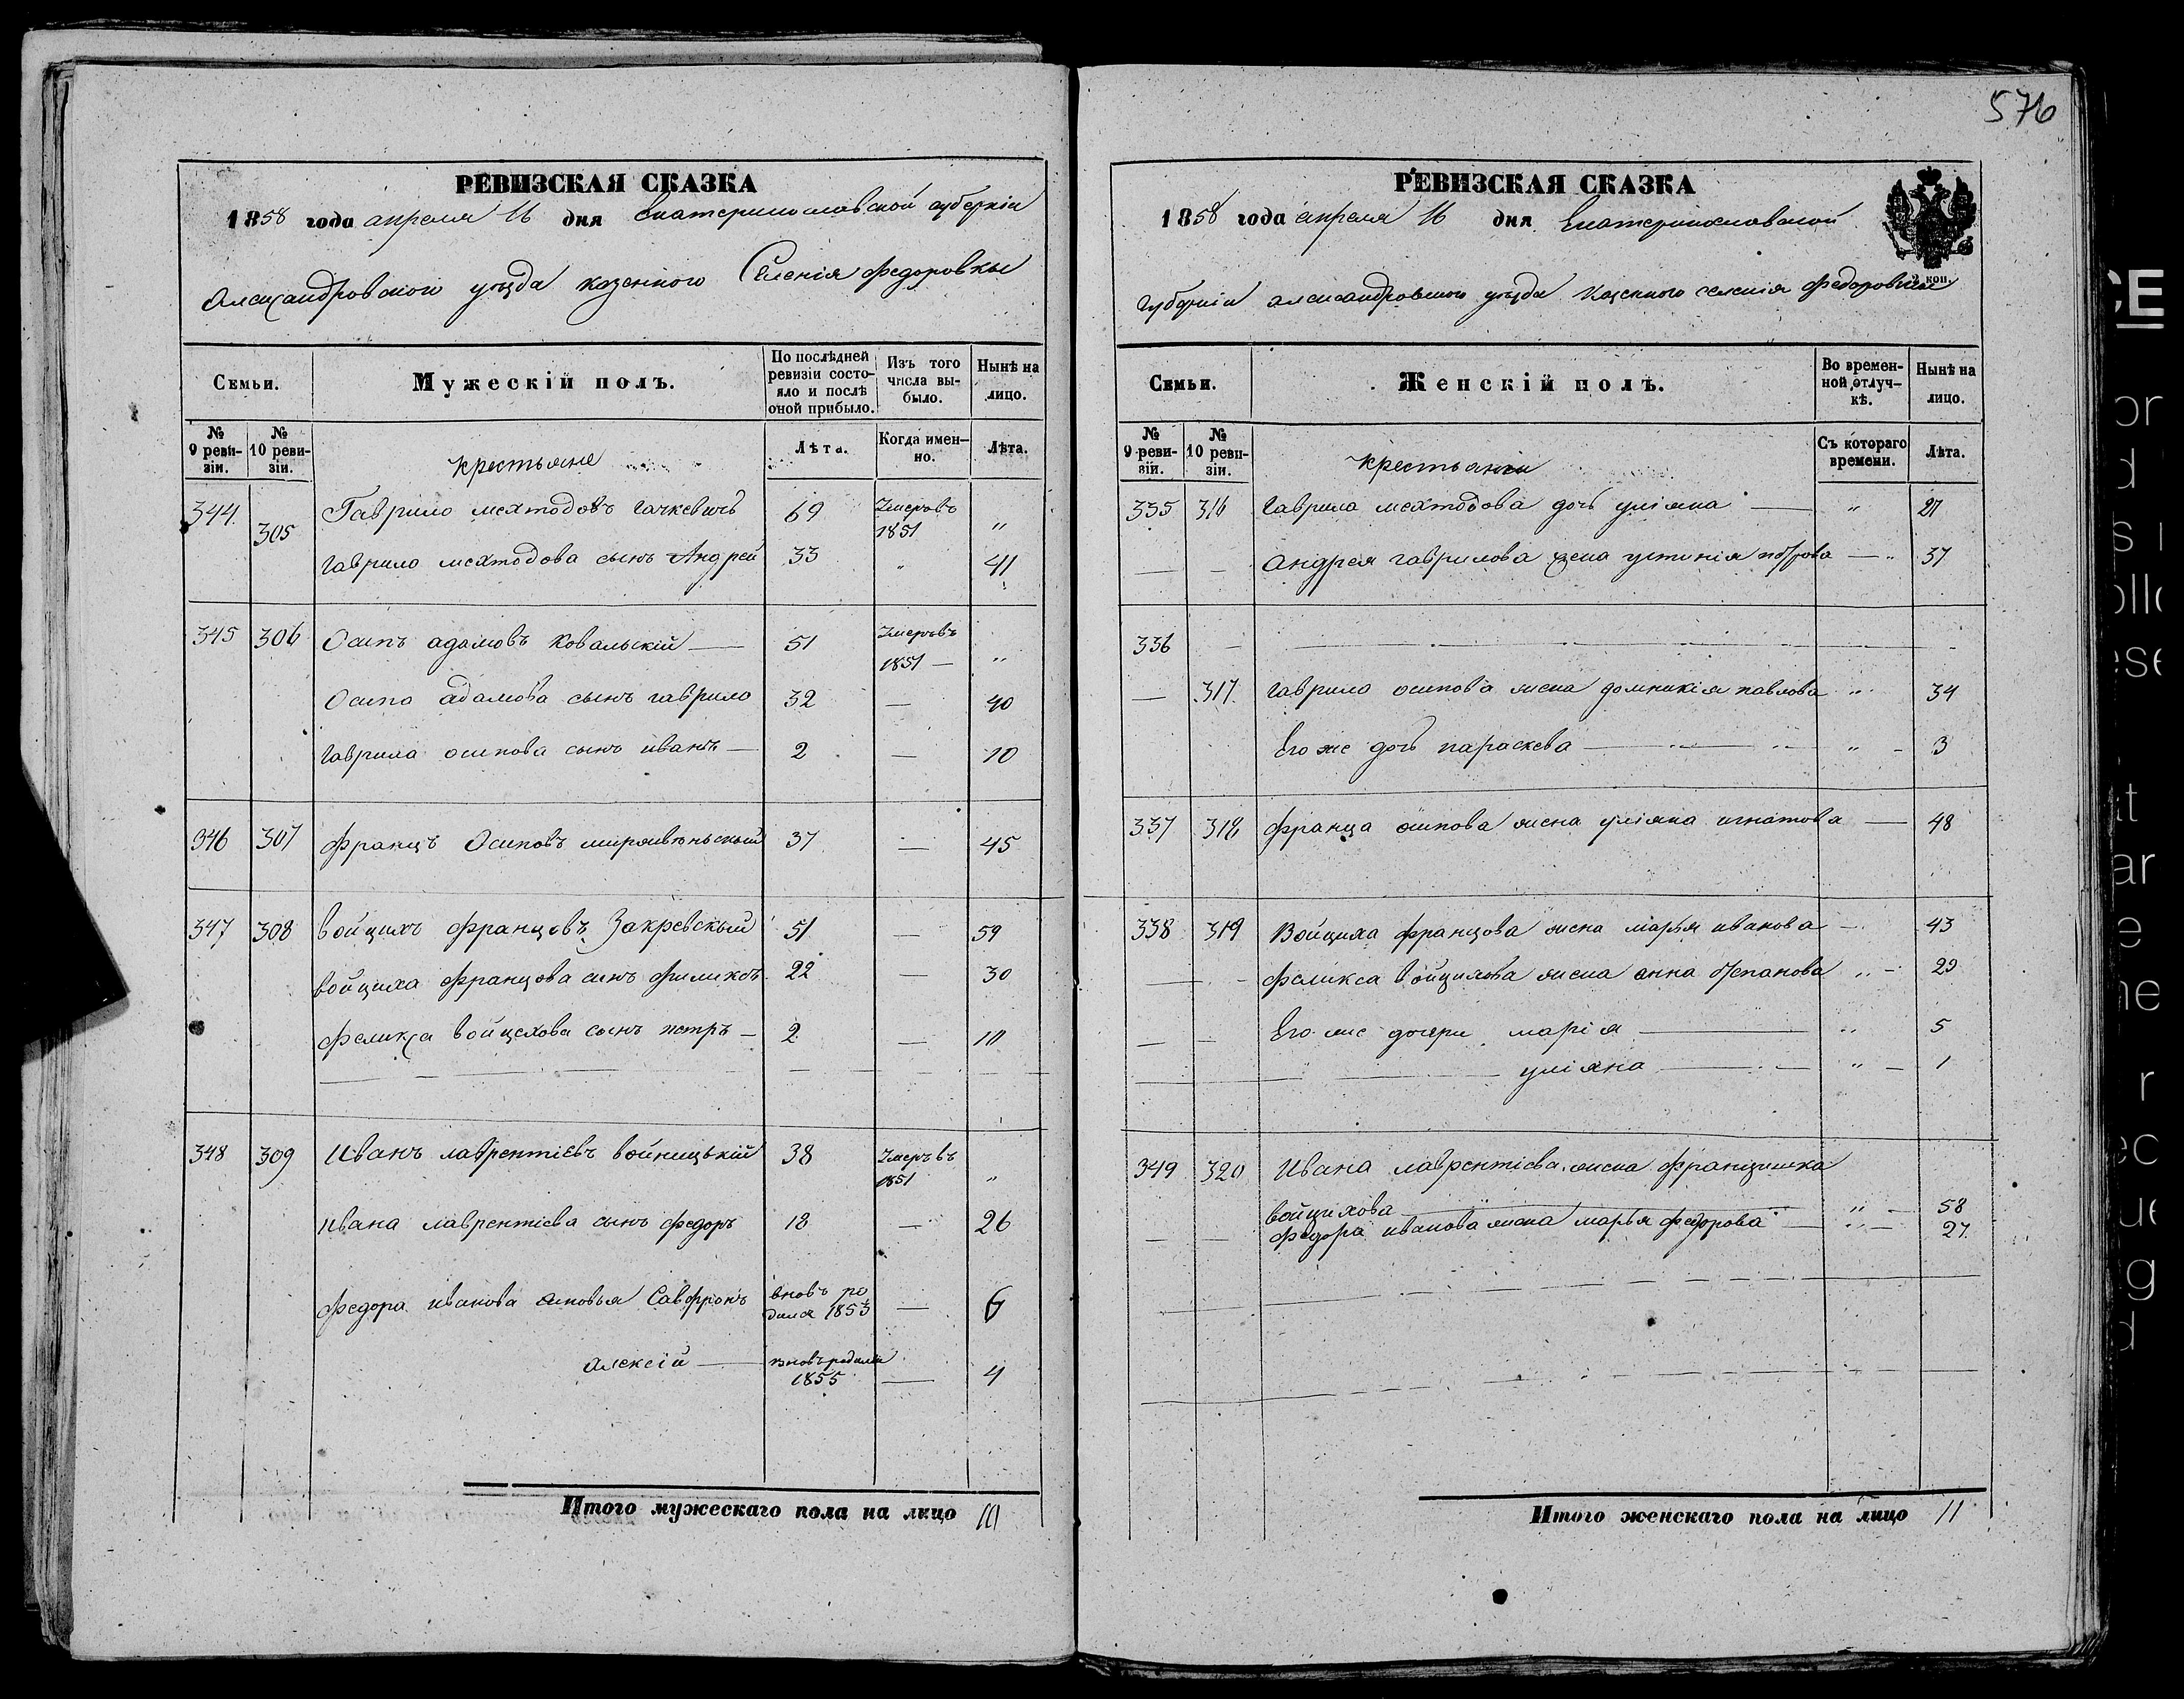 576
РЕВИЗСКАЯ СКАЗКА
1858 года апреля 16 дня Екатеринославской губерніи
Александровского уѣзда казенного Селенія Федоровки
Семьи.
Мужескій полъ.
По послѣдней ревизіи состояло и послѣ оной прибыло.
Изъ того числа выбыло.
Нынѣ на лицо.
№ 9 ревизіи.
№ 10 ревизіи.
крестьяне
Лѣта.
Когда именно.
Лѣта.
344. 305 Гаврило Мехтодовъ 69 Умеръ въ 1851 "
Гаврило мехтодова сынъ Андрей 33 " 41
345 306 Осипъ адамовъ Ковальскій — 51 Умеръ въ 1851 — "
Осипа адамова сынъ гаврило 32 — 40
гаврила осипова сынъ иванъ — 2 — 10
346 307 францъ Осиповъ 37 — 45
347 308 войцихъ францовъ Закревскый 51 — 59
войциха францова сынъ филиксъ 22 — 30
феликса войцехова сынъ петръ — 2 — 10
348 309 Иванъ лаврентіевъ войницькій 38 Умеръ въ 1851 "
ивана лаврентіева сынъ федоръ 18 — 26
федора иванова сыновья Савфронъ вновь родился 1853 — 6
алексій — вновь родился 1855 — 4
Итого мужескаго пола на лицо 10
РЕВИЗСКАЯ СКАЗКА
1858 года апреля 16 дня Екатеринославской
губерніи александровского уѣзда казенного селенія Федоровки
2 коп.
Семьи.
Женскій полъ.
Во временной отлучкѣ.
Нынѣ на лицо.
№ 9 ревизіи.
№ 10 ревизіи.
крестьянки
Съ котораго времени.
Лѣта.
335 316 гаврила мехтодова дочь уліяна — " 21
— — андрея гаврилова жена устинія петрова — " 37
336
— 317 гаврило осипова жена домникія павлова " 34
Его же дочь параскева — " — 3
337 318 франца осипова жена уліяна игнатова — 48
338 319 Войциха францова жена марья иванова — 43
феликса войцихова жена анна степанова " — 29
Его же дочери марія — " 5
уліяна — " — 1
349 320 Ивана лаврентіева жена францишка
войцихова — " — 58
федора иванова жена марья федорова — " — 27
Итого женскаго пола на лицо 11